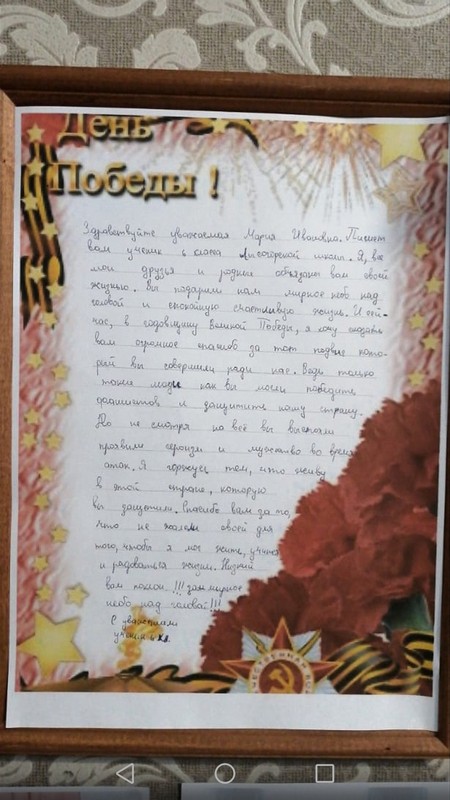 День
Победы !
Здравствуйте уважаемая Мария Ивановна. Пишет
вам ученик 6 класа Лисогорской школы. Я, все
мои друзья и родные обязаны вам своей
жизнью. Вы подарили нам мирное небо над
головой и спокойную счастливую жизнь. И сей-
час, в годовщину великой Победы, я хочу сказать
вам огромное спасибо за тот подвиг кото-
рый вы совершили ради нас. Ведь только
такие люди как вы могли победить
фашистов и защитить нашу страну.
Но не смотря на всё вы выстояли
проявили героизм и мужество во время
атак. Я горжусь тем, что живу
в этой стране, которую
вы защитили. Спасибо вам за то,
что не жалели своей для
того, чтобы я мог жить, учится
и радоваться жизни. Низкий
вам поклон !!! за мирное
небо над головай!!!
С уважением
ученик 6 кл.